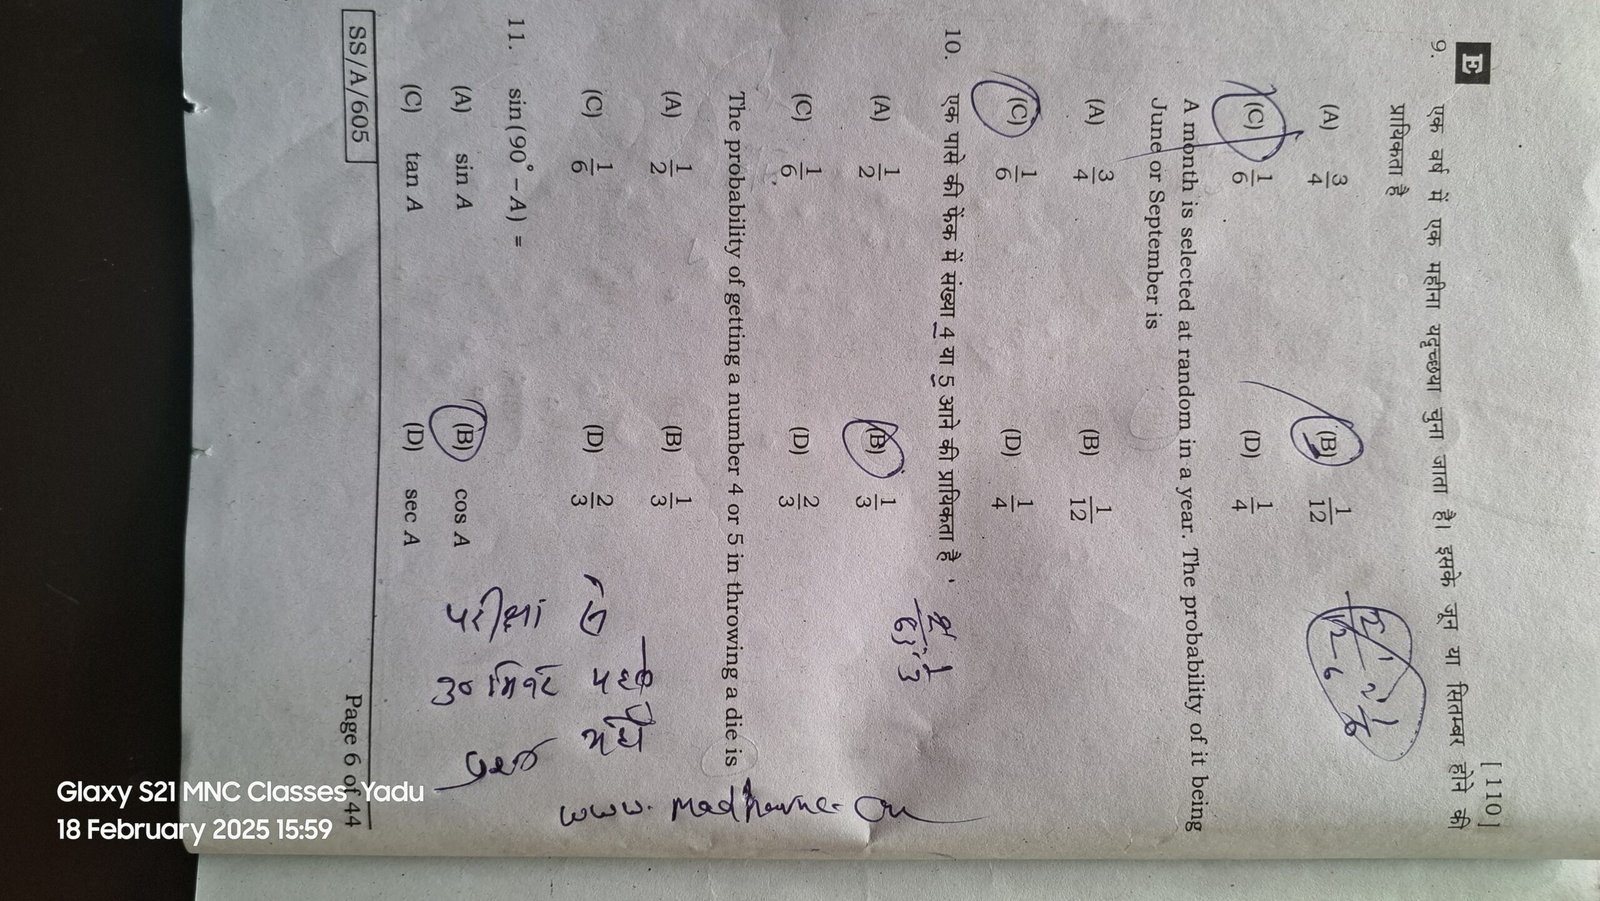 E
[ 110 ]
9. एक वर्ष में एक महीना यदृच्छया चुना जाता है। इसके जून या सितम्बर होने की
प्रायिकता है
(A) 3/4 (B) 1/12
(C) 1/6 (D) 1/4
A month is selected at random in a year. The probability of it being
June or September is
(A) 3/4 (B) 1/12
(C) 1/6 (D) 1/4
10. एक पासे की फेंक में संख्या 4 या 5 आने की प्रायिकता है
(A) 1/2 (B) 1/3
(C) 1/6 (D) 2/3
The probability of getting a number 4 or 5 in throwing a die is
(A) 1/2 (B) 1/3
(C) 1/6 (D) 2/3
11. sin (90° – A) =
(A) sin A (B) cos A
(C) tan A (D) sec A
परीक्षा से
30 मिनट पहले
यहाँ
www.
SS/A/605
Page 6 of 44
Glaxy S21 MNC Classes Yadu
18 February 2025 15:59